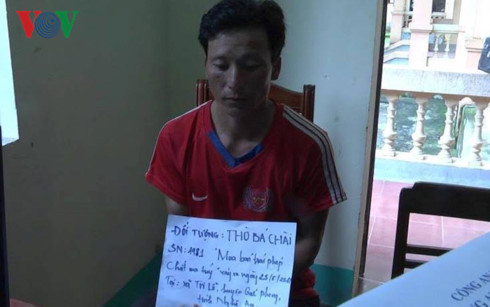 VOV
ĐỐI TƯỢNG: THÒ BÁ CHÀI
SN: 1981 "Mua bán trái phép
Chất ma túy" vào ngày 23/6/
Tại: xã Tri Lễ, huyện Quế phong,
tỉnh Nghệ An
CÔNG AN